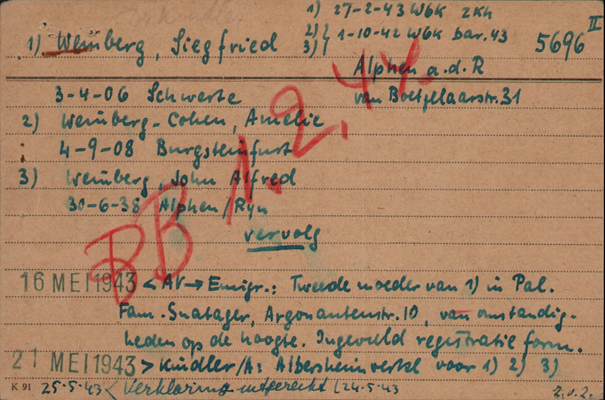 1) 27-2-43 WbK ZKh
1) Weinberg, Siegfried 2) 3) 1-10-42 WbK bar. 43 5696 II
Alphen a.d.R
3-4-06 Schwerte van Boetzelaarstr. 31
2) Weinberg-Cohen, Amelie
4-9-08 Burgsteinfurt
3) Weinberg, John Alfred
30-6-38 Alphen/Ryn
vervolg
BB 1.2.44
16 MEI 1943 < AV → Emigr.: Tweede moeder van 1) in Pal.
Fam. Snatager, Argonautenstr. 10, van omstandig-
heden op de hoogte. Ingevuld registratie form.
21 MEI 1943 > Kindler/A: Albersheim vertel voor 1) 2) 3)
K 91 25-5-43 < Verklaring uitgereikt 24-5-43 z.o.z.